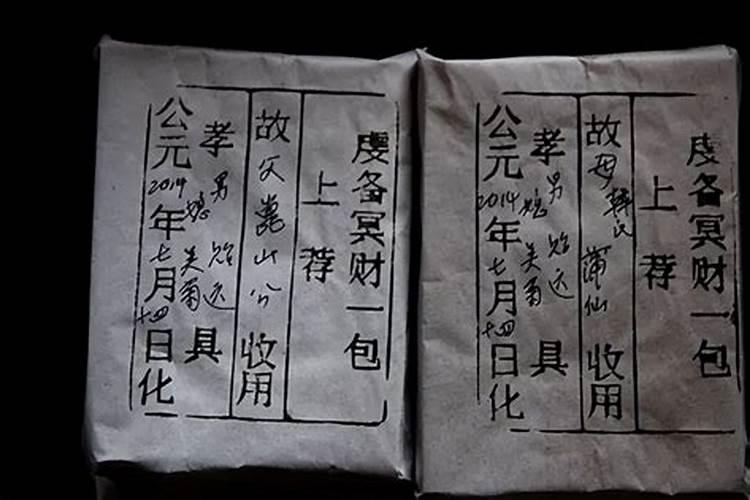 虔备冥财一包
上荐
故父 山公 收用
孝男 贻远 具
媳 美菊
公元2014年七月十四日化
虔备冥财一包
上荐
故母韩氏 蒲仙 收用
孝男 贻远 具
媳 美菊
公元2014年七月十四日化